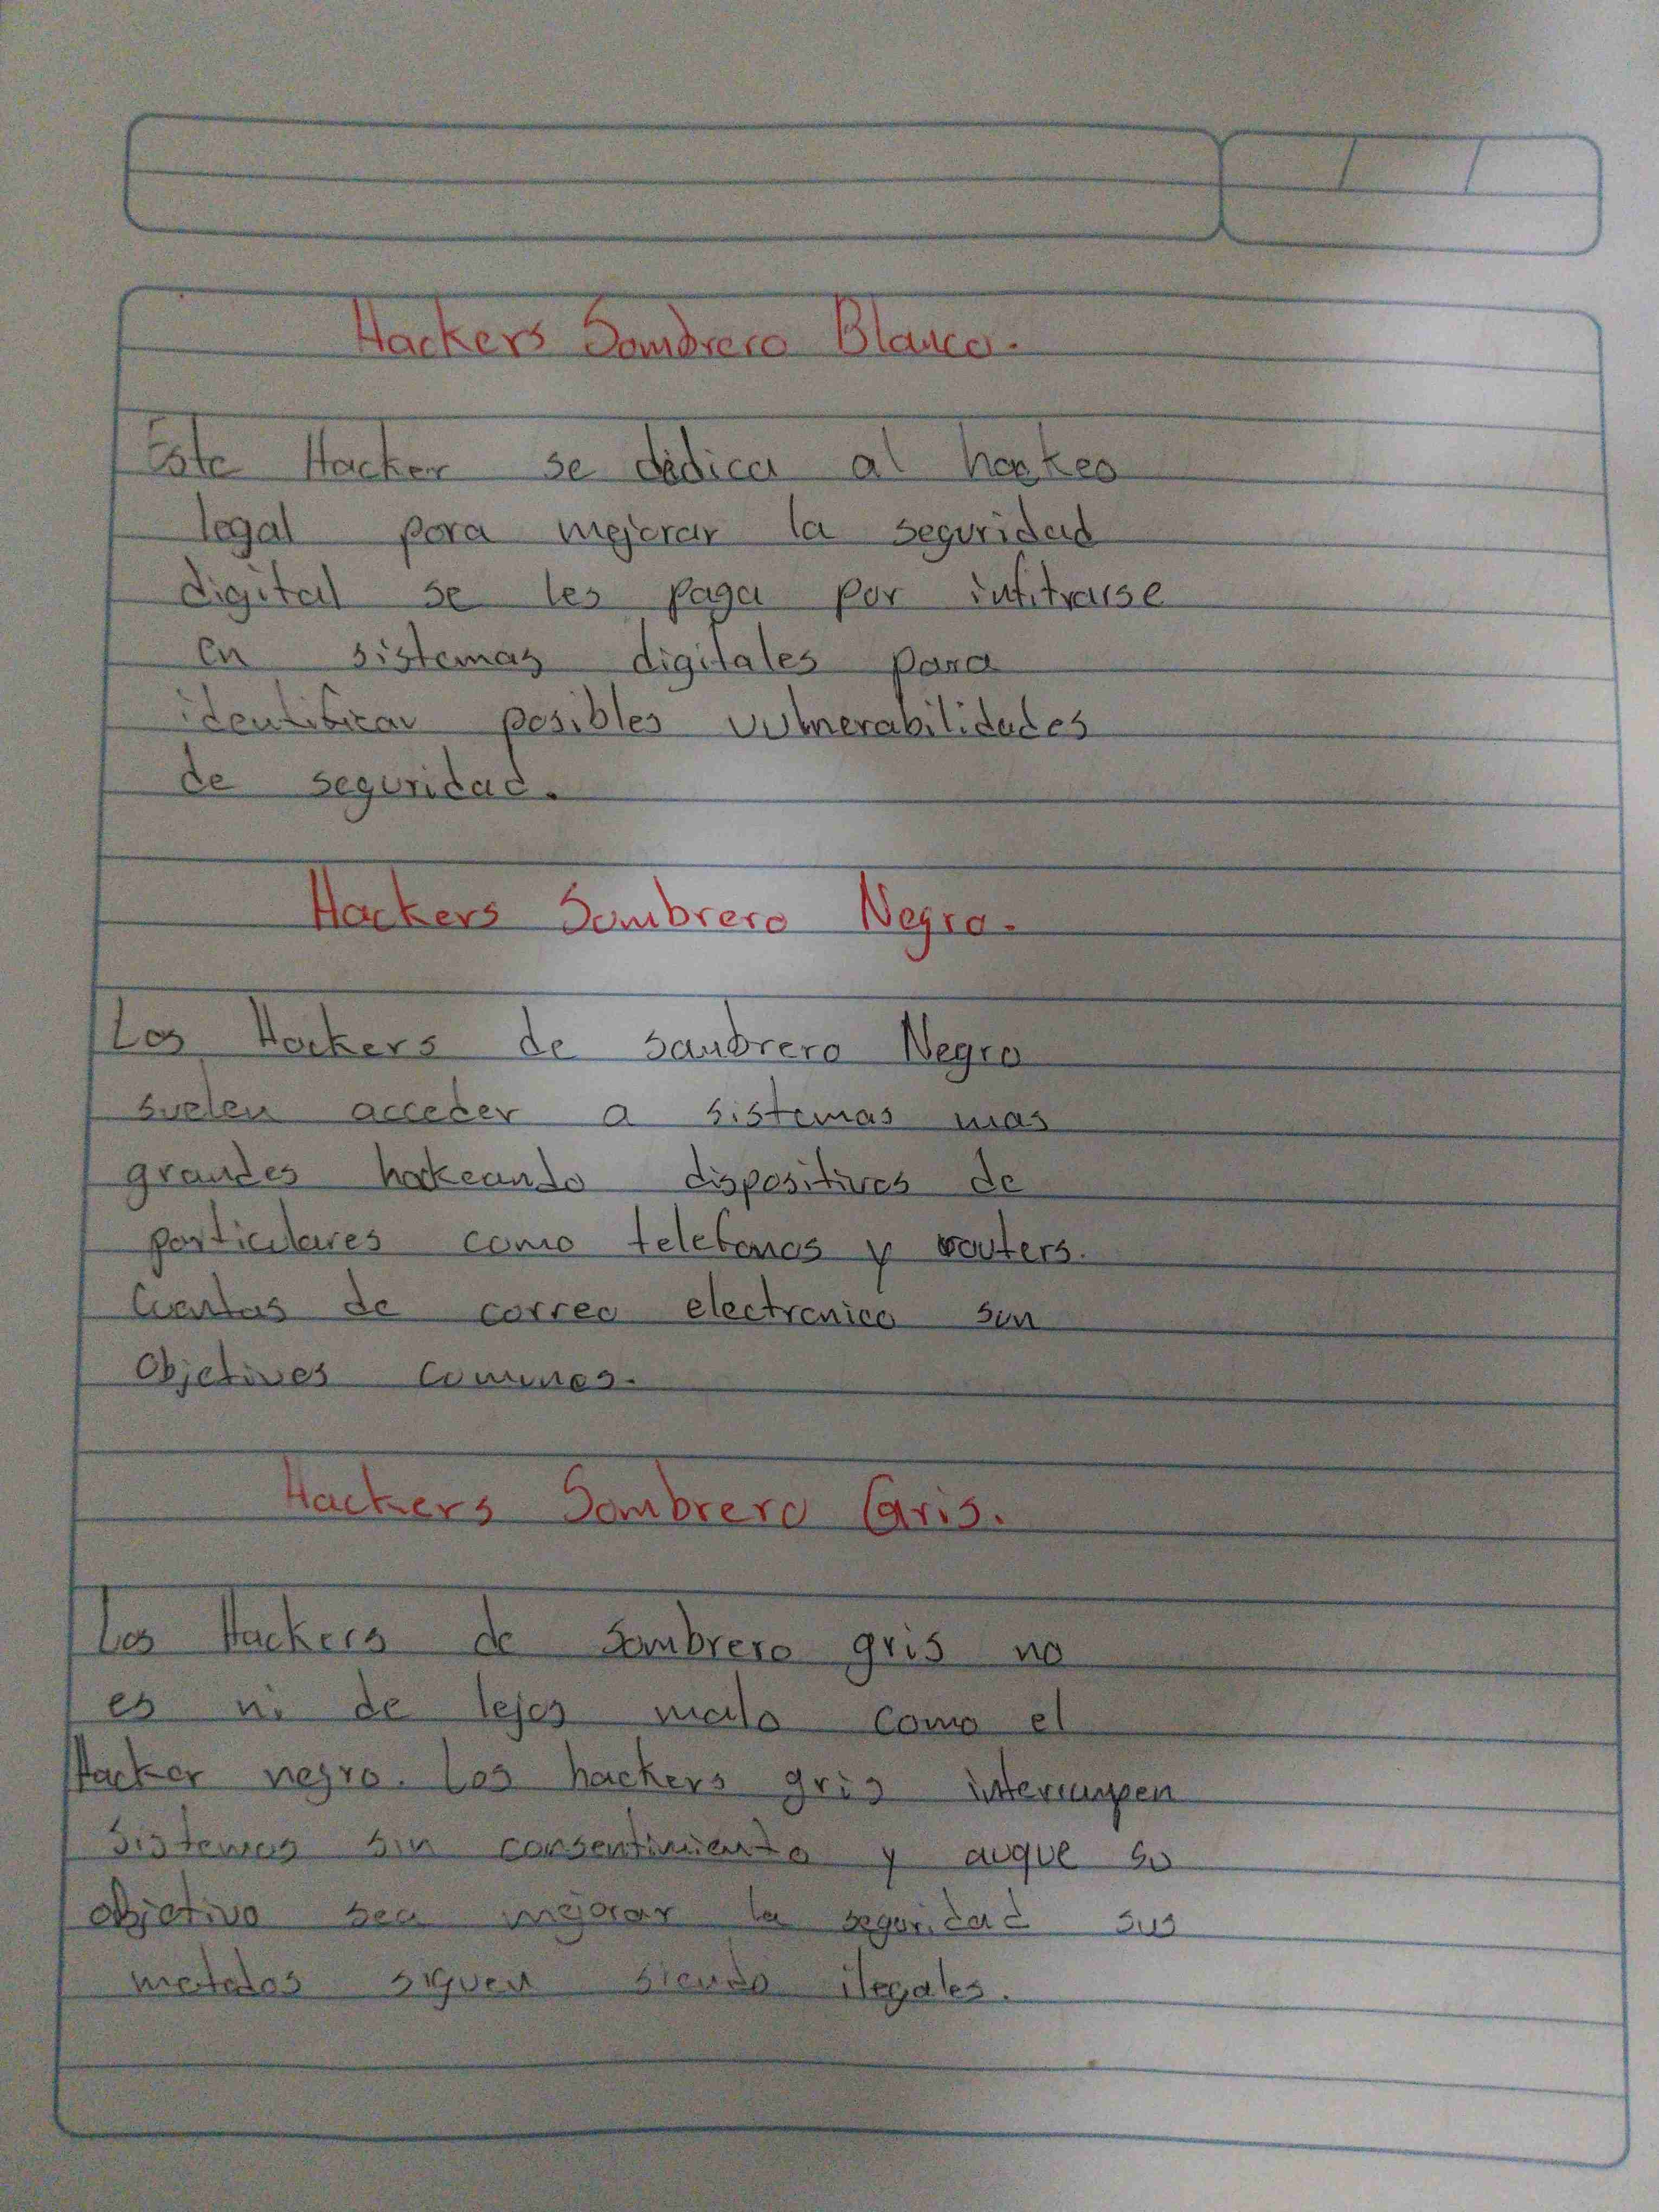 Hackers Sombrero Blanco.
Este Hacker se dedica al hackeo
legal para mejorar la seguridad
digital se les paga por infitrarse
en sistemas digitales para
identificar posibles vulnerabilidades
de seguridad.
Hackers Sombrero Negro.
Los Hackers de sombrero Negro
suelen acceder a sistemas mas
grandes hackeando dispositivos de
particulares como telefonos y routers.
Cuentas de correo electronico son
Objetivos comunes.
Hackers Sombrero Gris.
Los Hackers de sombrero gris no
es ni de lejos malo como el
Hacker negro. Los hackers gris interrumpen
sistemas sin consentimiento y auque su
objetivo sea mejorar la seguridad sus
metodos siguen siendo ilegales.